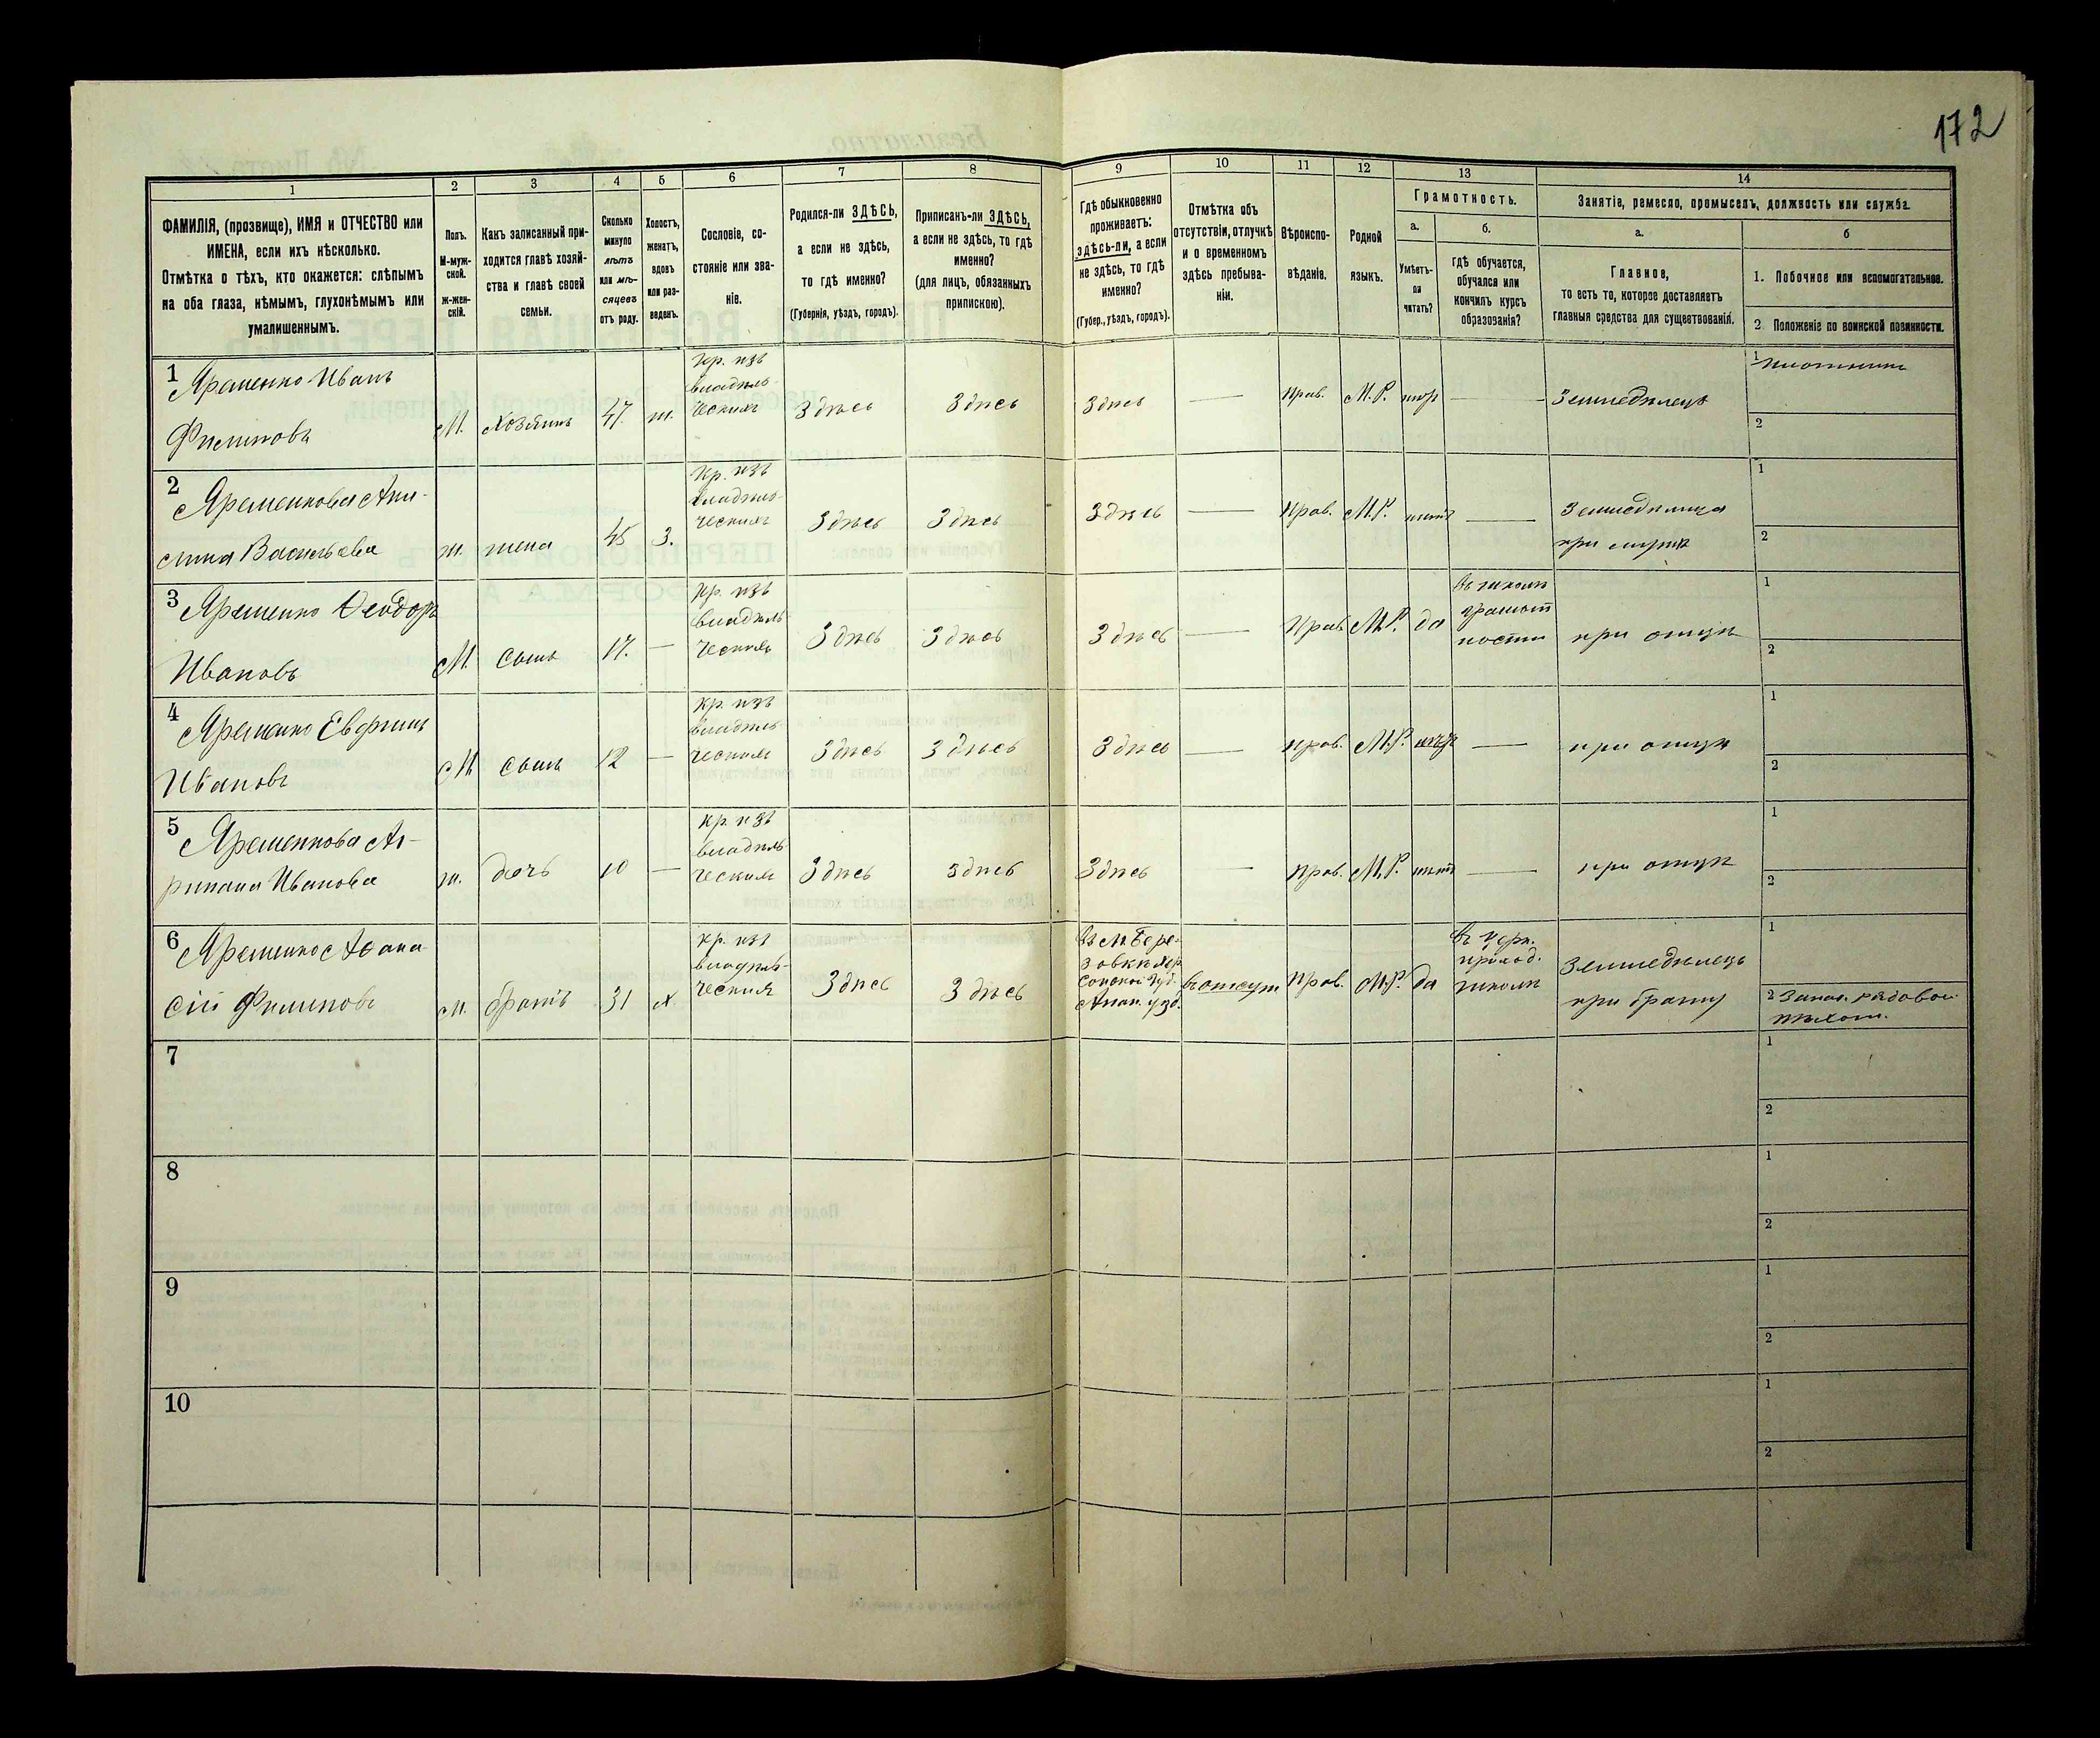 172
1
2
3
4
5
6
7
8
9
10
11
12
13
14
ФАМИЛІЯ, (прозвище), ИМЯ и ОТЧЕСТВО или
ИМЕНА, если ихъ нѣсколько.
Отмѣтка о тѣхъ, кто окажется: слѣпымъ
на оба глаза, нѣмымъ, глухонѣмымъ или
умалишеннымъ.
Полъ.
М-муж-
ской.
Ж-жен-
скій.
Какъ записанный при-
ходится главѣ хозяй-
ства и главѣ своей
семьи.
Сколько
минуло
лѣтъ
или мѣ-
сяцевъ
отъ роду.
Холостъ,
женатъ,
вдовъ
или раз-
веденъ.
Сословіе, со-
стояніе или зва-
ніе.
Родился-ли ЗДѢСЬ,
а если не здѣсь,
то гдѣ именно?
(Губернія, уѣздъ, городъ).
Приписанъ-ли ЗДѢСЬ,
а если не здѣсь, то гдѣ
именно?
(для лицъ, обязанныхъ
припискою).
Гдѣ обыкновенно
проживаетъ:
здѣсь-ли, а если
не здѣсь, то гдѣ
именно?
(Губер., уѣздъ, городъ).
Отмѣтка объ
отсутствіи, отлучкѣ
и о временномъ
здѣсь пребыва-
ніи.
Вѣроиспо-
вѣданіе.
Родной
языкъ.
Грамотность.
а.
Умѣетъ-
ли
читать?
б.
гдѣ обучается,
обучался или
кончилъ курсъ
образованія?
Занятіе, ремесло, промыселъ, должность или служба.
а.
Главное,
то есть то, которое доставляетъ
главныя средства для существованія.
б
1. Побочное или вспомогательное.
2. Положеніе по воинской повинности.
1 Яременко Иванъ
Филиповъ
М. хозяинъ 47. ж.
Кр. изъ
владѣль-
ческихъ
Здѣсь Здѣсь Здѣсь — Прав. М.Р. — Земледѣлецъ
1 плотникъ
2
2 Яременкова
Васильева
ж. жена 45 З.
Кр. изъ
владѣль-
ческихъ
Здѣсь Здѣсь Здѣсь — Прав. М.Р. нѣтъ —
Земледѣлица
при мужѣ
1
2
3 Яременко Ѳеодоръ
Ивановъ
М. сынъ 17. —
Кр. изъ
владѣль-
ческихъ
Здѣсь Здѣсь Здѣсь — Прав. М.Р. да
въ школѣ
грамот
ности
при отцѣ
1
2
4 Яременко Евфимъ
Ивановъ
М. сынъ 12 —
Кр. изъ
владѣль-
ческихъ
Здѣсь Здѣсь Здѣсь — Прав. М.Р. нѣтъ — при отцѣ
1
2
5 Яременкова Аг-
рипина Иванова
ж. дочь 10 —
Кр. изъ
владѣль-
ческихъ
Здѣсь Здѣсь Здѣсь — Прав. М.Р. нѣтъ — при отцѣ
1
2
6 Яременко Аѳана-
сій Филиповъ
М. братъ 31 х.
Кр. изъ
владѣль-
ческихъ
Здѣсь Здѣсь
въ м. Бере-
зовкѣ Хер
сонской Губ.
Анан. уѣз.
въ отсут Прав. М.Р. да
въ церк.
приход.
школѣ
Земледѣлецъ
при братѣ
1
2 Запас. рядовой
пѣхот.
7
1
2
8
1
2
9
1
2
10
1
2